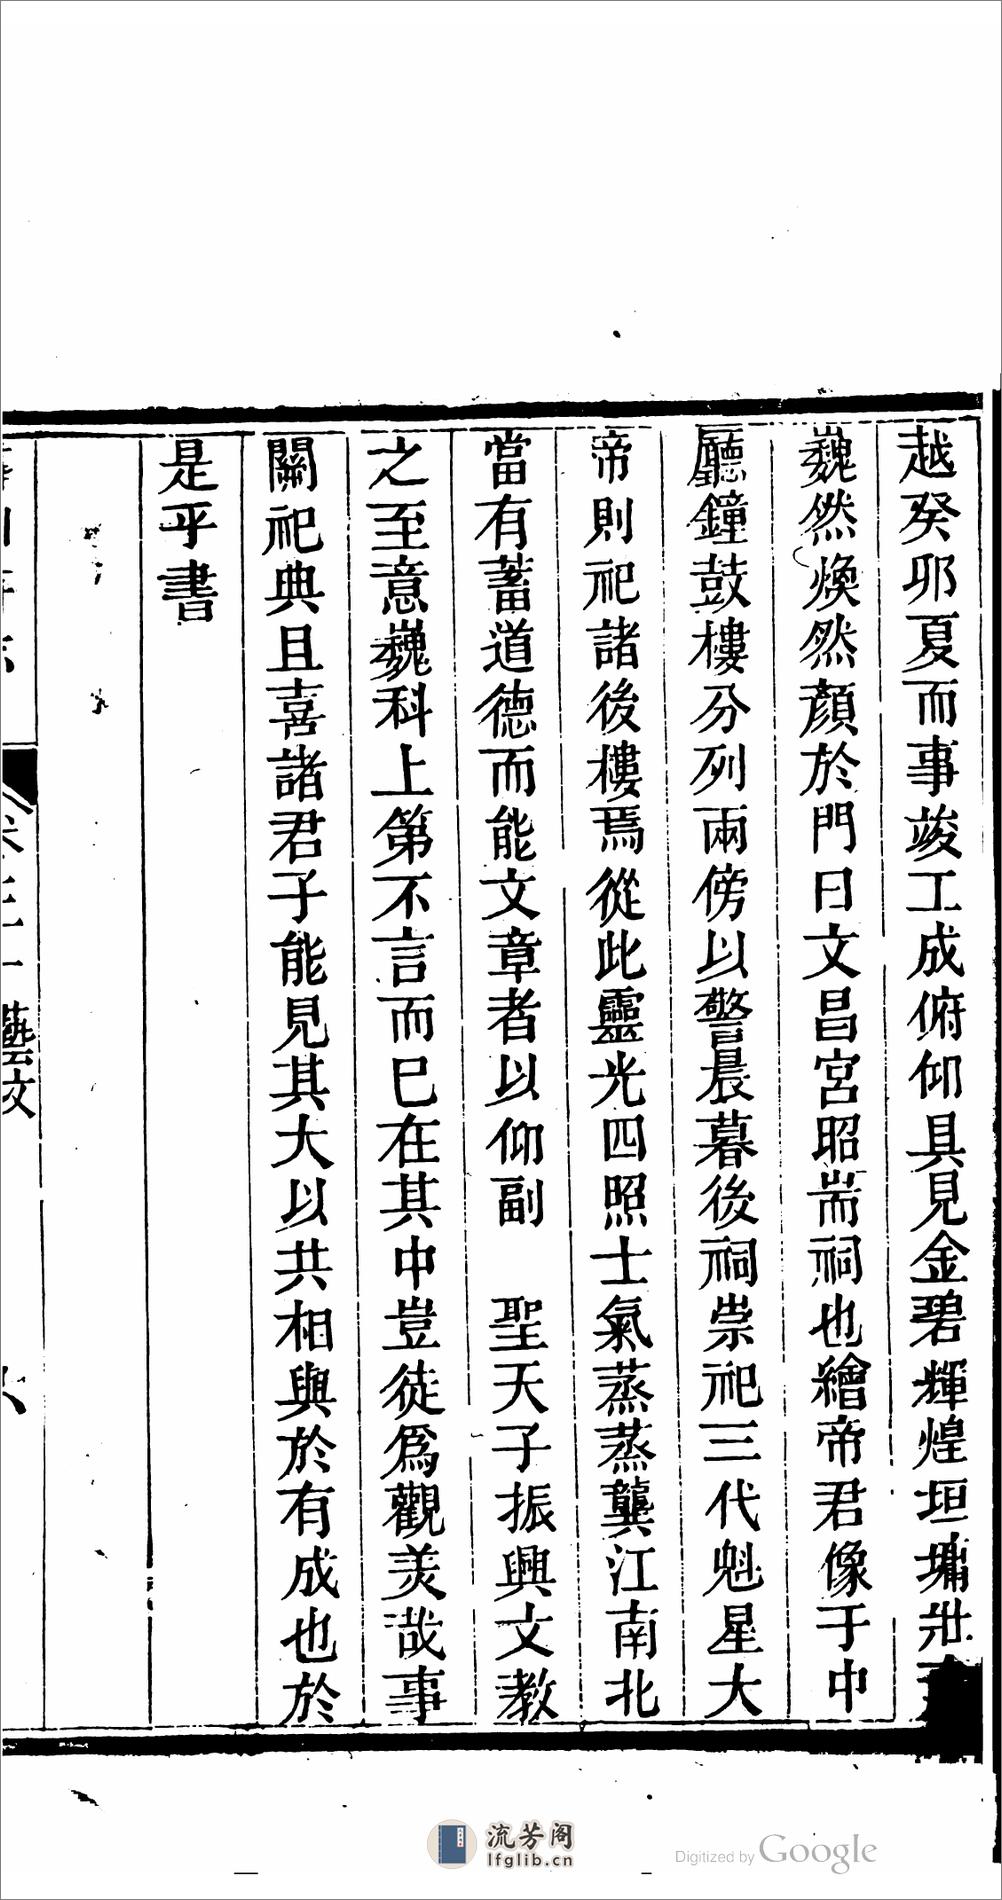 越癸卯夏而事竣工成俯仰具見金碧輝煌垣墉壯
巍然煥然顏於門曰文昌宮昭耑祠也繪帝君像于中
廳鐘鼓樓分列兩傍以警晨暮後祠崇祀三代魁星大
帝則祀諸後樓焉從此靈光四照士氣蒸蒸龔江南北
當有蓄道德而能文章者以仰副　聖天子振興文教
之至意巍科上第不言而巳在其中豈徒爲觀羙哉事
關祀典且喜諸君子能見其大以共相與於有成也於
是乎書
藝文
流芳阁
lfglib.cn
Digitized by Google